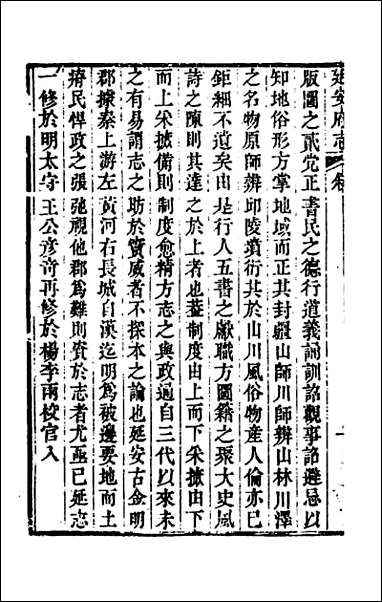 延安府志 卷 一
版圖之貳党正書民之德行道義誦訓詔觀事詔避忌以
知地俗形方掌地域而正其封疆山師川師辨山林川澤
之名物原師辨邱陵墳衍其於山川風俗物産人倫亦已
鉅細不遺矣由是行人五書之獻職方圖籍之聚大史風
詩之陳則其達之於上者也葢制度由上而下采摭由下
而上采摭備則制度愈精方志之與政通自三代以來未
之有易謂志之助於實威者不探本之論也延安古金明
郡據秦上游左黄河右長城自漢迄明爲被邊要地而土
瘠民悍政之張弛視他郡爲難則資於志者尤亟已延志
一修於明太守王公彦竒再修於楊李兩校官入